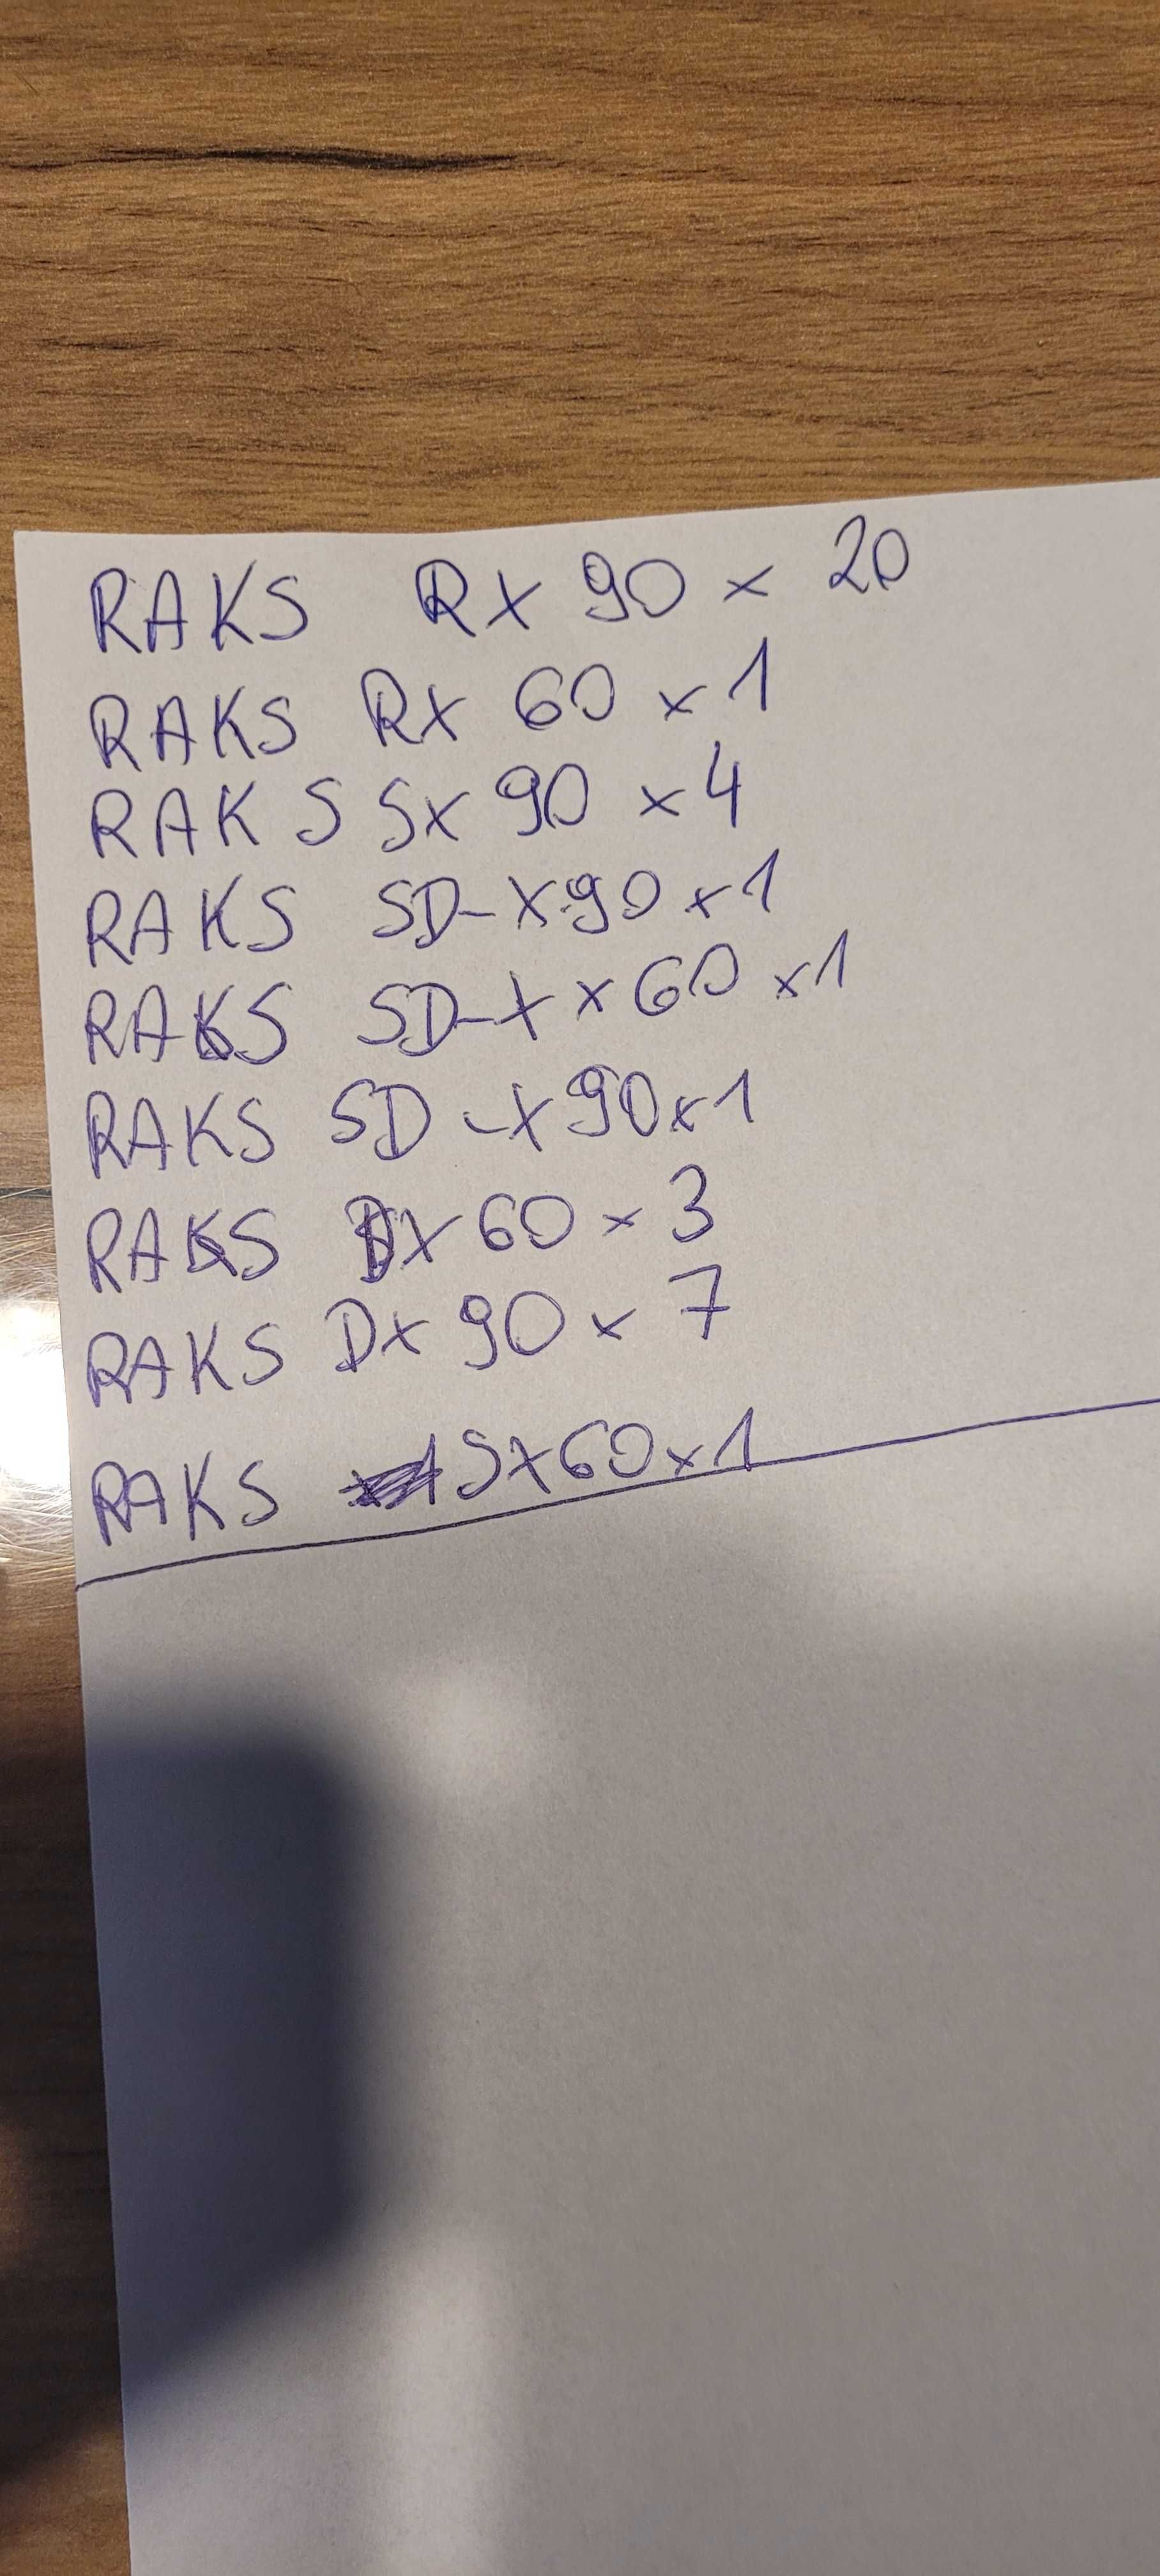 RAKS RX 90 x 20
RAKS RX 60 x 1
RAKS SX 90 x 4
RAKS SD-X 90 x 1
RAKS SD-X x 60 x 1
RAKS SD -X 90 x 1
RAKS DX 60 x 3
RAKS DX 90 x 7
RAKS SX 60 x 1